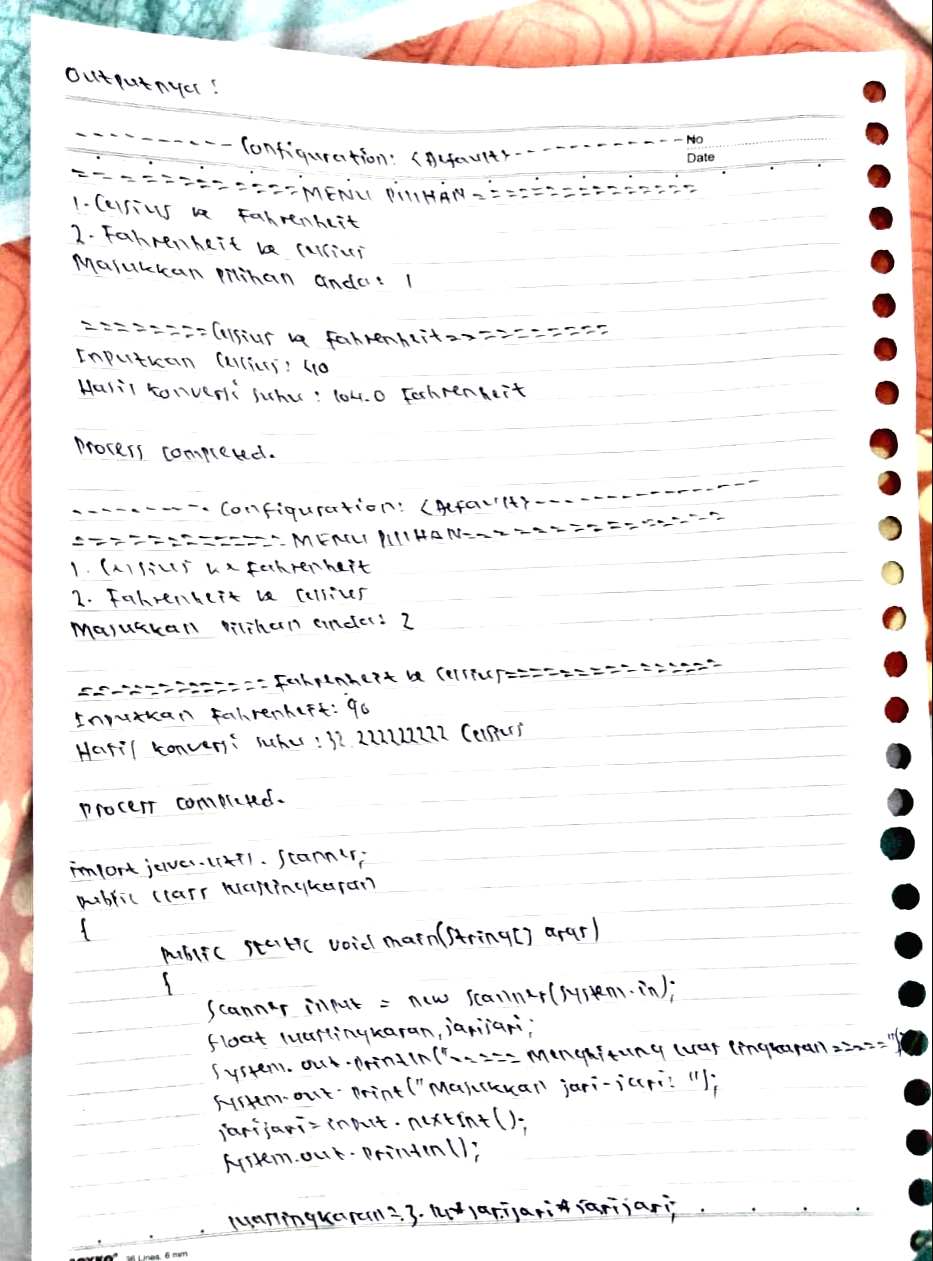 Outputnya :
---------- Configuration: <Default> ---------------- No
Date
============MENU PILIHAN================
1. Celsius ke Fahrenheit
2. Fahrenheit ke Celsius
Masukkan Pilihan anda: 1
========Celsius ke Fahrenheit==========
Inputkan Celsius: 40
Hasil konversi suhu : 104.0 Fahrenheit
Process completed.
--------- Configuration: <Default>------------------
============= MENU PILIHAN================
1. Celsius ke Fahrenheit
2. Fahrenheit ke Celsius
Masukkan Pilihan anda: 2
============ Fahrenheit ke Celsius===============
Inputkan Fahrenheit: 90
Hasil konversi suhu : 32.222222222 Celsius
Process completed.
import java.util.Scanner;
public class luaslingkaran
{
public static void main(String[] args)
{
Scanner input = new Scanner(System.in);
float luaslingkaran, jarijari;
System.out.println("===== Menghitung luas lingkaran =====");
System.out.print("Masukkan jari-jari: ");
jarijari=input.nextInt();
System.out.println();
luaslingkaran=3.14*jarijari*jarijari;
36 Lines, 6 mm